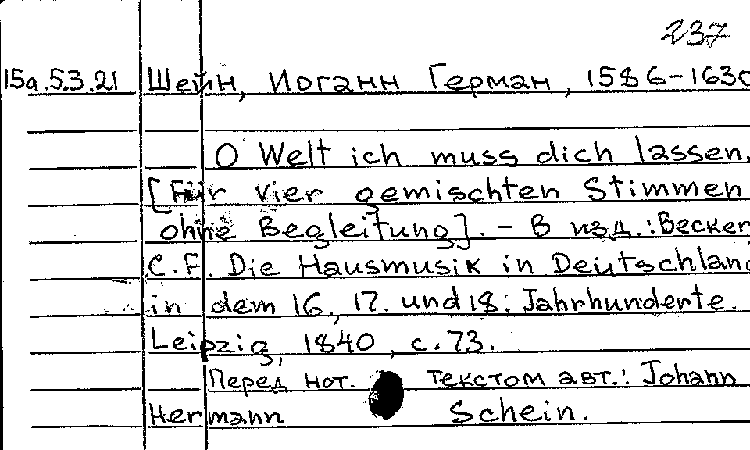 237
15a.5.3.21 Шейн, Иоганн Герман, 1586-1630
O Welt ich muss dich lassen.
[Für vier gemischten Stimmen
ohne Begleitung]. - В изд.: Becker
C.F. Die Hausmusik in Deutschland
in dem 16., 17. und 18. Jahrhunderte.
Leipzig, 1840, с. 73.
Перед нот. текстом авт.: Johann
Hermann Schein.